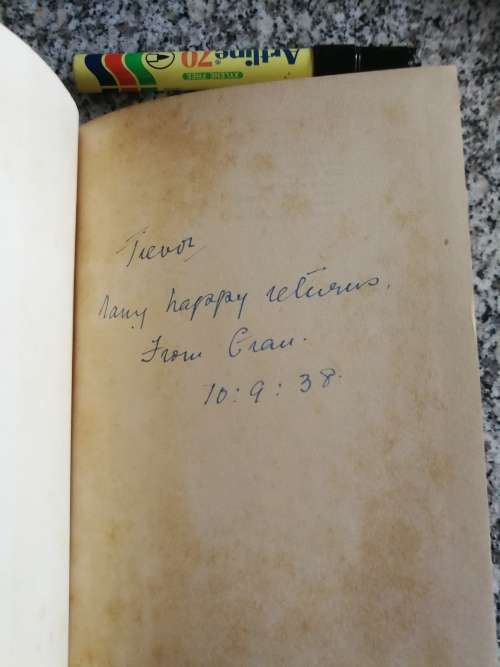 Artline 70
XYLENE FREE
Trevor
Many happy returns.
From Gran.
10:9:38.